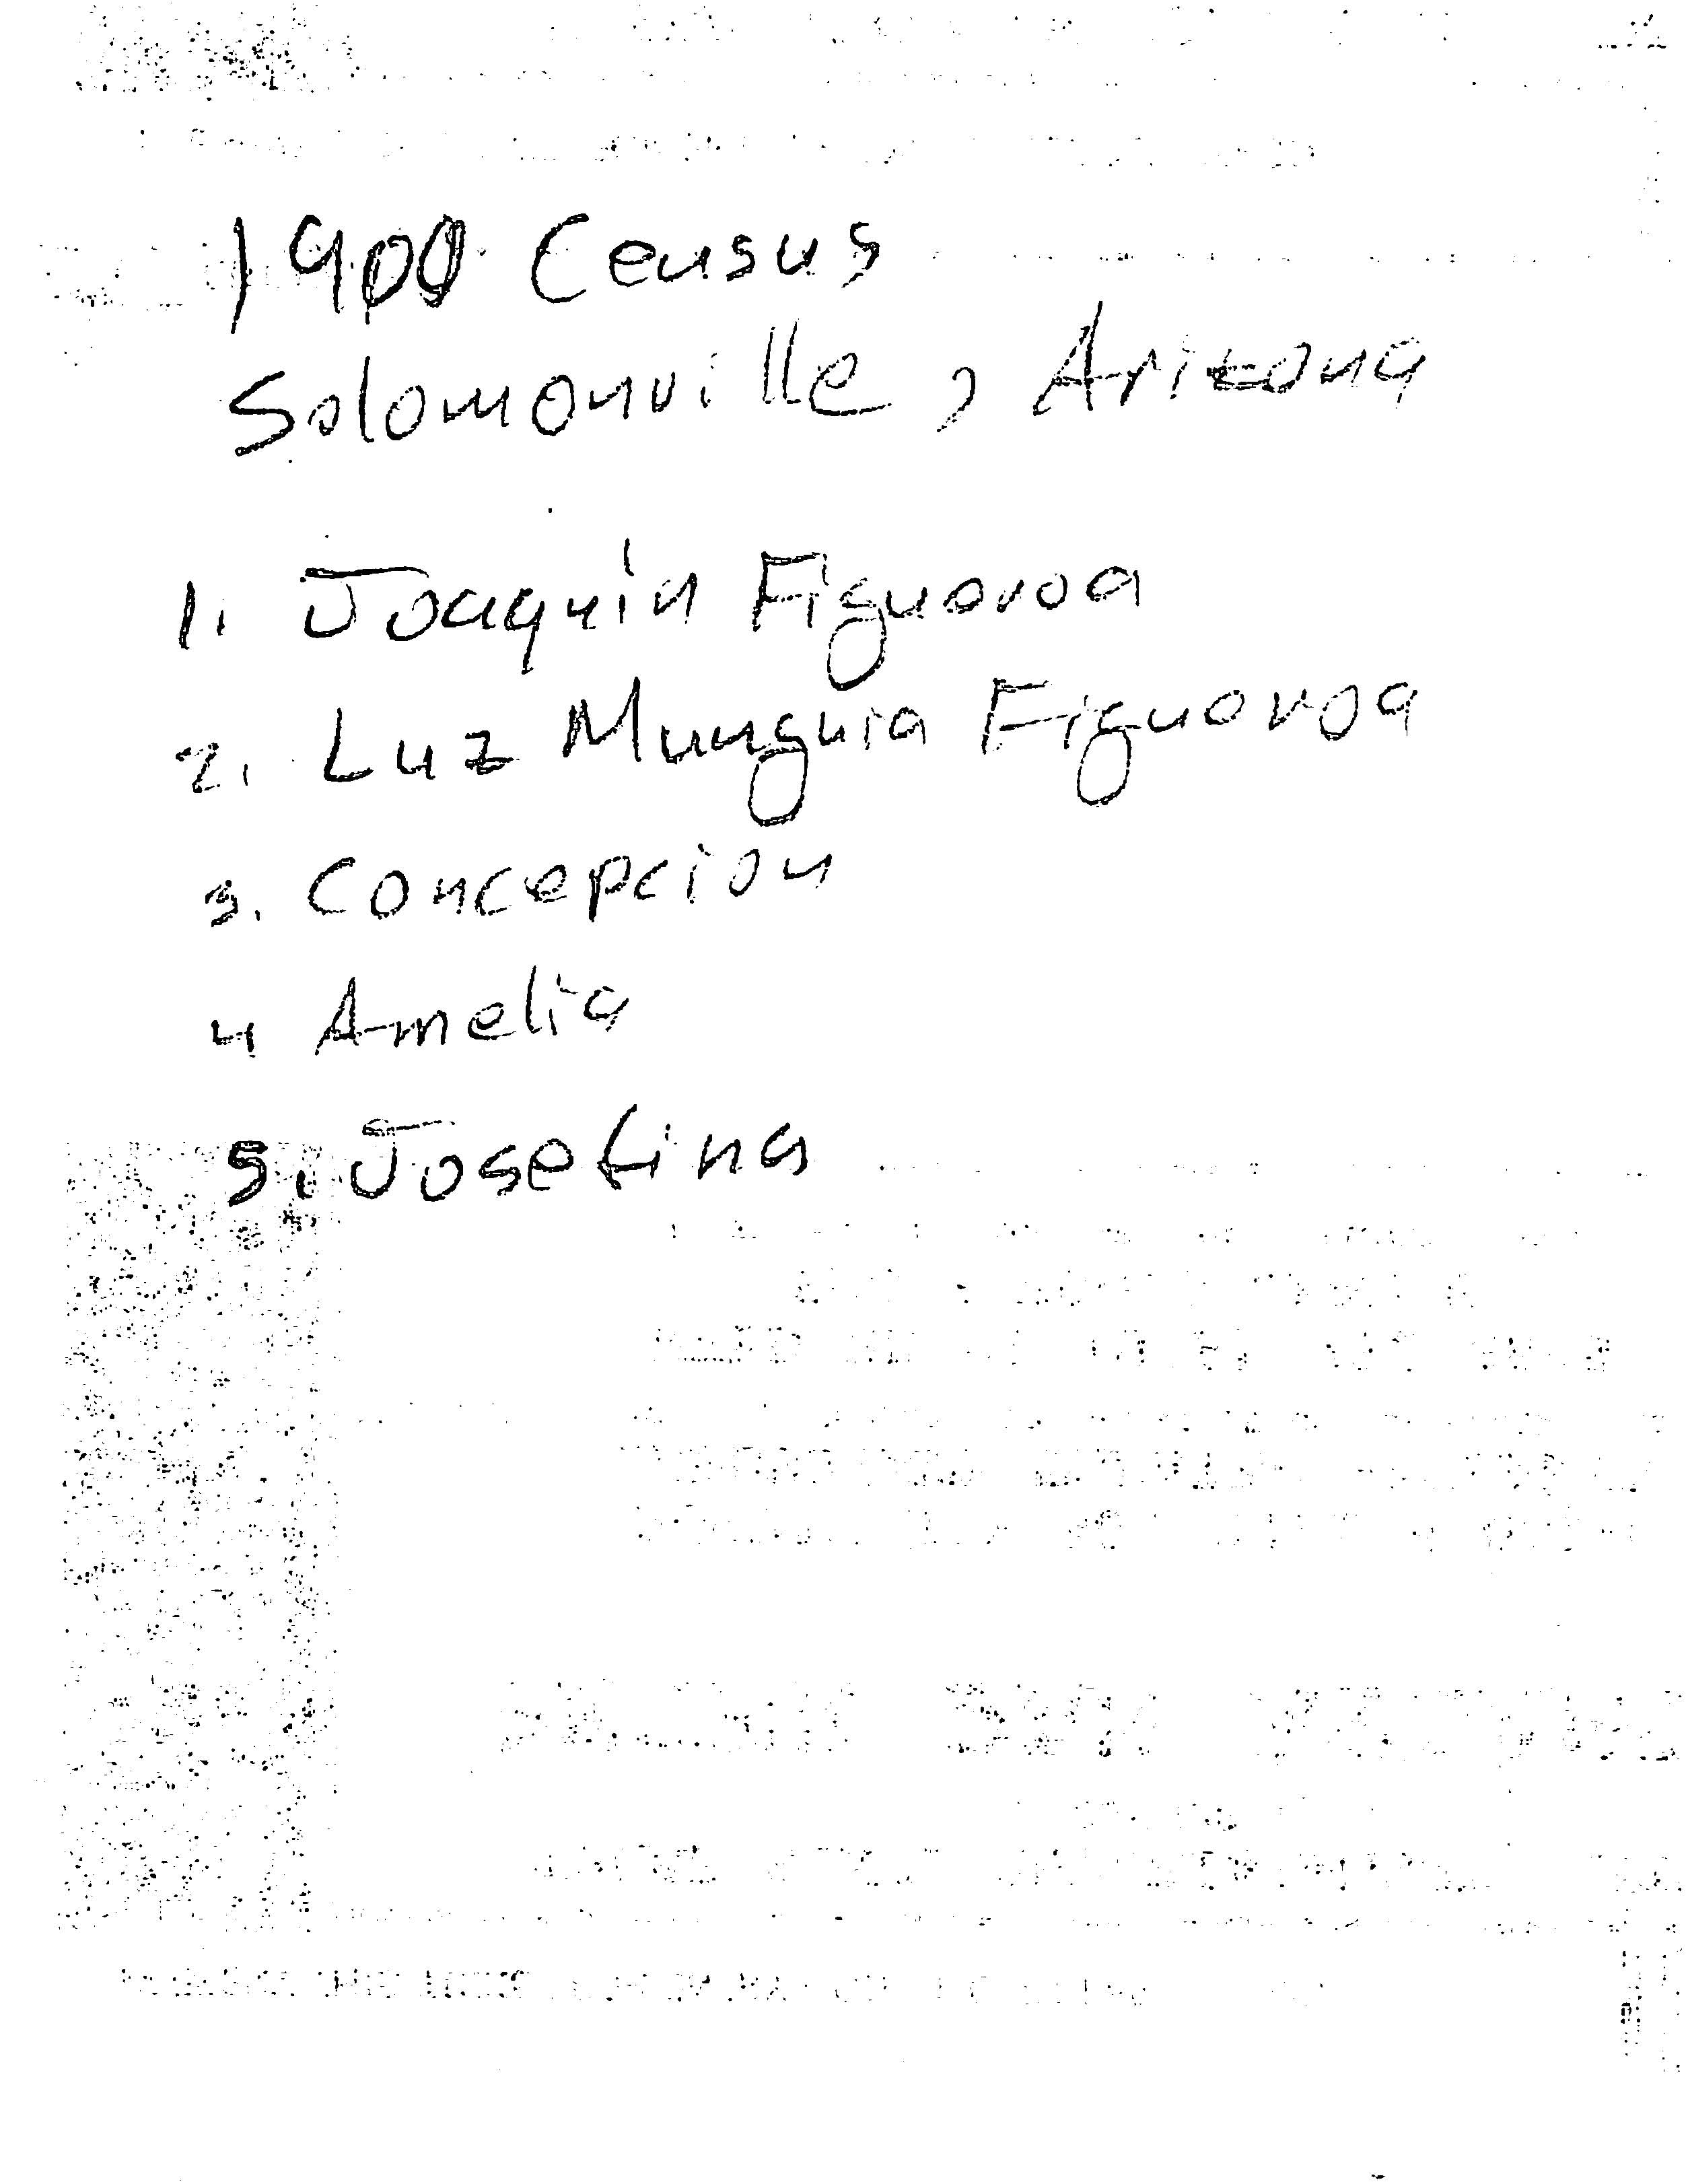 1900 Census
Solomonville, Arizona
1. Joaquin Figueroa
2. Luz Munguia Figueroa
3. Concepcion
4 Amelia
5. Josefina